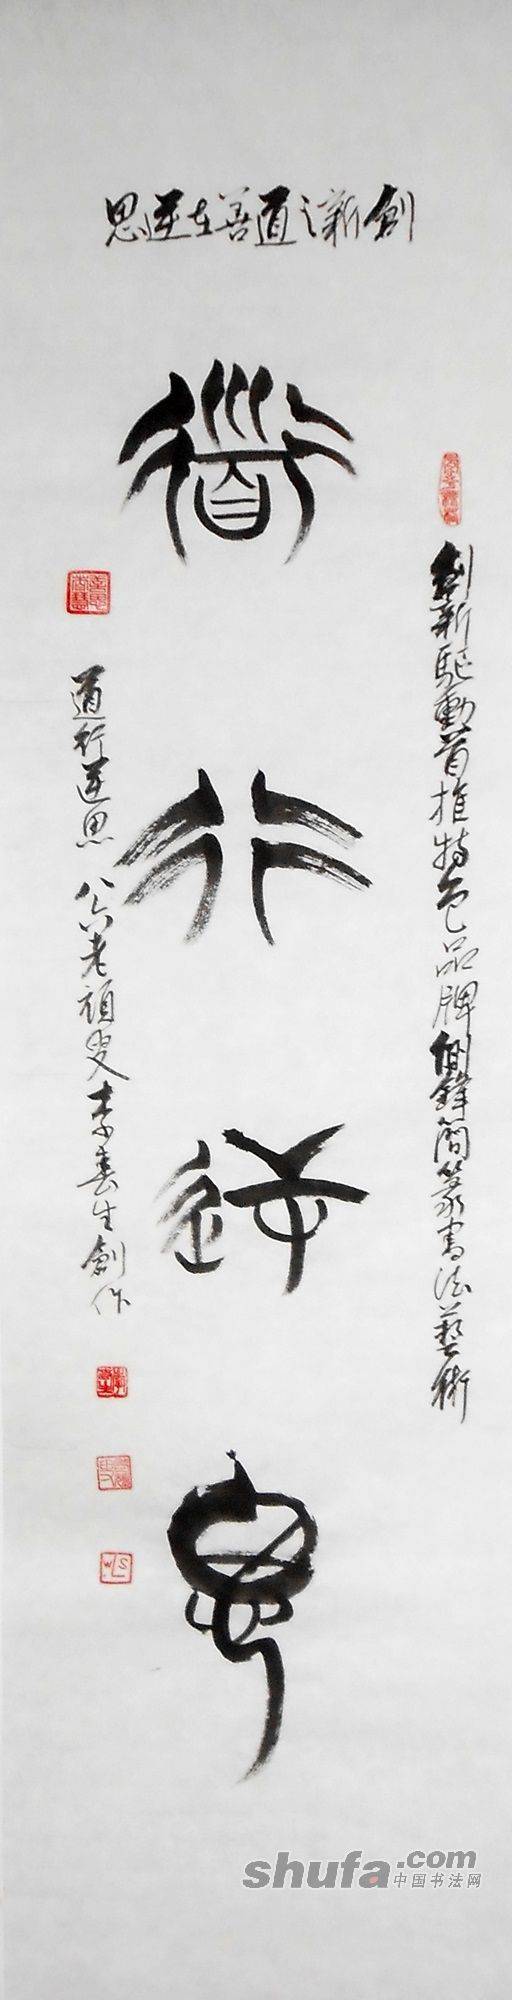 創新之道善在逆思
創新驅動首推特色品牌側鋒簡篆書法藝術
道行逆思
道行逆思 八六老頑叟李春生創作
WLS
shufa.com
中国书法网